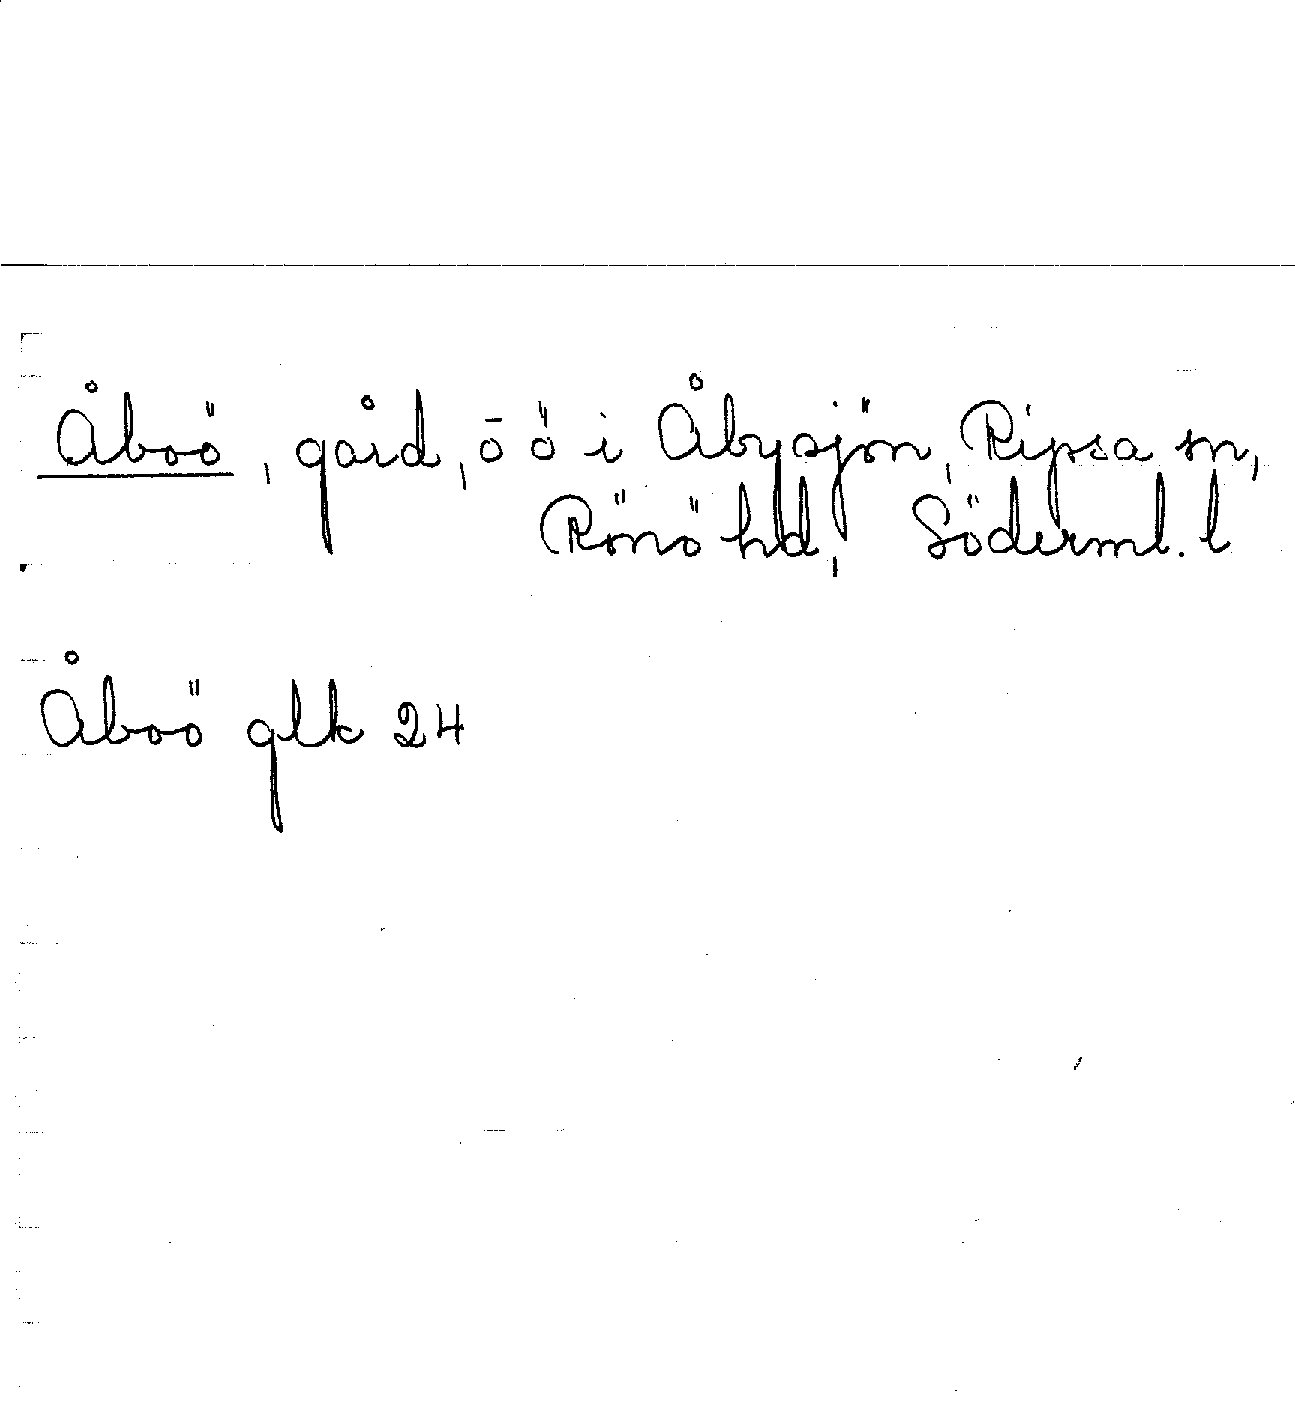 Åboö, gård, ō ö i Åbysjön, Ripsa sn,
Rönö hd, Söderml. l
Åboö glk 24